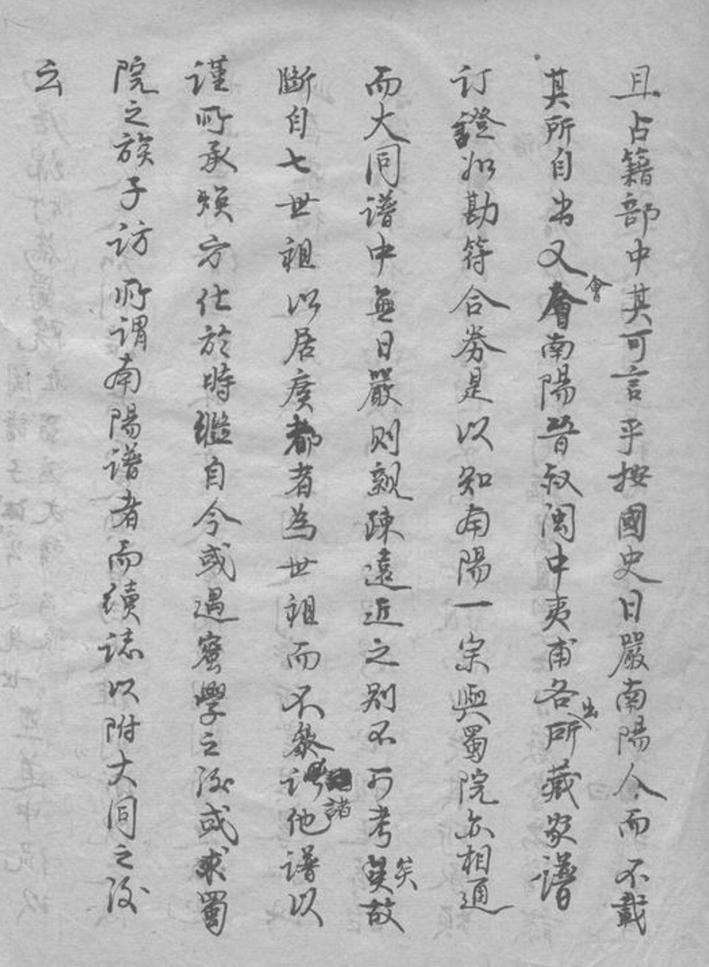 且占籍部中其可言乎按國史日嚴南陽人而不載
其所自出又會南陽晉叔閩中夷甫各出所藏家譜
訂證如勘符合券是以知南陽一宗與蜀院亦相通
而大同譜中無日嚴則親疎遠近之別不可考矣故
斷自七世祖以居廣都者為世祖而不參諸他譜以
謹所承頌方仕於時繼自今或遇蜜學之後或求蜀
院之族子訪所謂南陽譜者而續誌以附大同之後
云